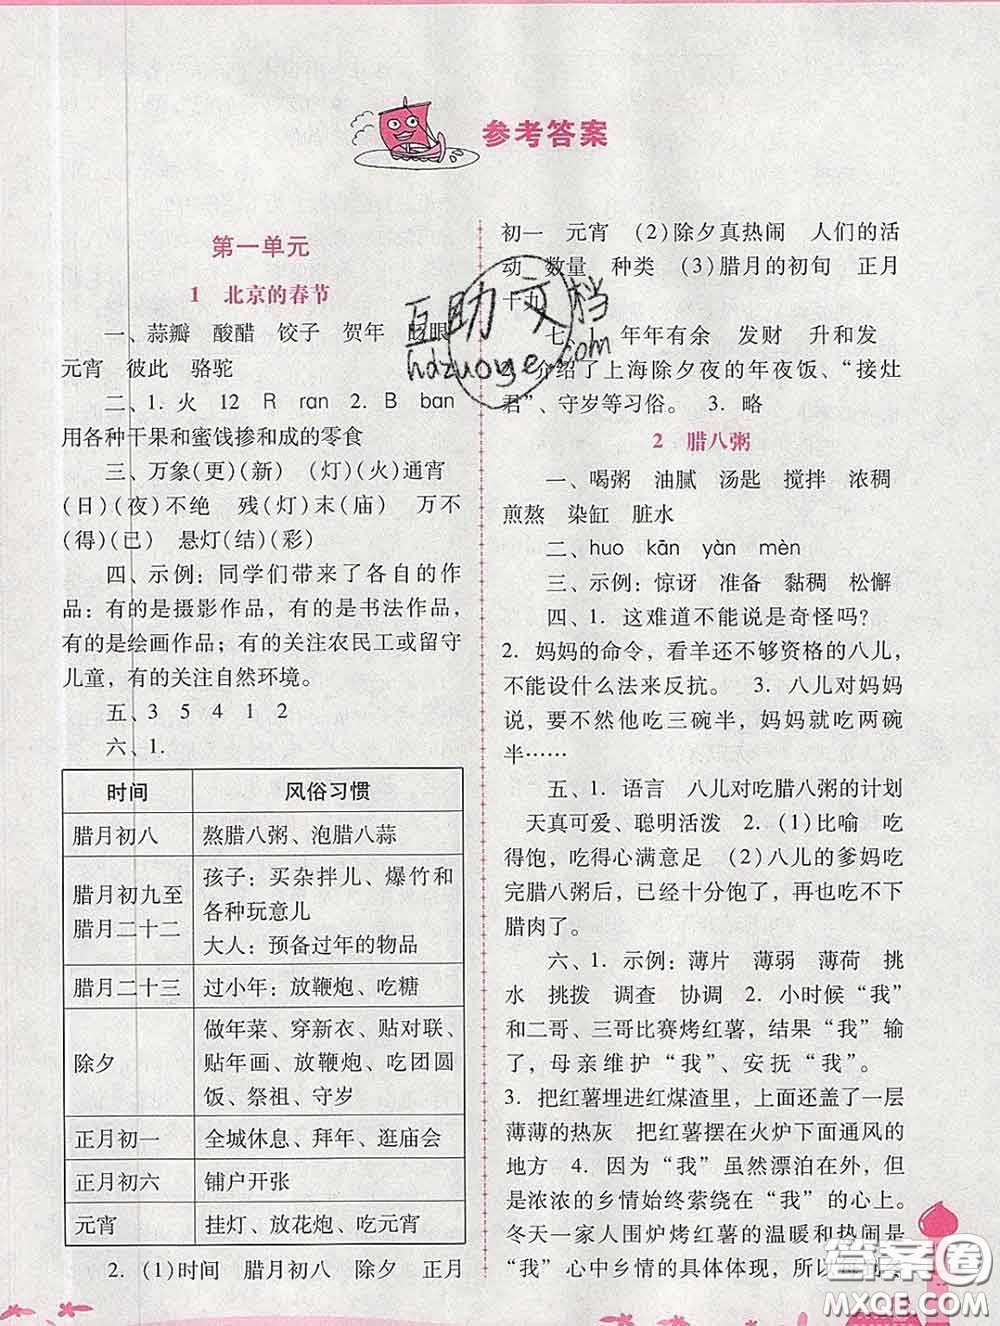 参考答案
第一单元
1 北京的春节
一、蒜瓣 酸醋 饺子 贺年 眨眼
元宵 彼此 骆驼
二、1. 火 12 R ran 2. B ban
用各种干果和蜜饯掺和成的零食
三、万象(更)(新) (灯)(火)通宵
(日)(夜)不绝 残(灯)末(庙) 万不
(得)(已) 悬灯(结)(彩)
四、示例：同学们带来了各自的作
品：有的是摄影作品，有的是书法作品，
有的是绘画作品；有的关注农民工或留守
儿童，有的关注自然环境。
五、3 5 4 1 2
六、1.
时间 风俗习惯
腊月初八 熬腊八粥、泡腊八蒜
腊月初九至
腊月二十二
孩子：买杂拌儿、爆竹和
各种玩意儿
大人：预备过年的物品
腊月二十三 过小年：放鞭炮、吃糖
除夕
做年菜、穿新衣、贴对联、
贴年画、放鞭炮、吃团圆
饭、祭祖、守岁
正月初一 全城休息、拜年、逛庙会
正月初六 铺户开张
元宵 挂灯、放花炮、吃元宵
2. (1)时间 腊月初八 除夕 正月
初一 元宵 (2)除夕真热闹 人们的活
动 数量 种类 (3)腊月的初旬 正月
十九
七、1. 年年有余 发财 升和发
介绍了上海除夕夜的年夜饭、“接灶
君”、守岁等习俗。 3. 略
2 腊八粥
一、喝粥 油腻 汤匙 搅拌 浓稠
煎熬 染缸 脏水
二、huo kān yàn mèn
三、示例：惊讶 准备 黏稠 松懈
四、1. 这难道不能说是奇怪吗？
2. 妈妈的命令，看羊还不够资格的八儿，
不能设什么法来反抗。 3. 八儿对妈妈
说，要不然他吃三碗半，妈妈就吃两碗
半……
五、1. 语言 八儿对吃腊八粥的计划
天真可爱、聪明活泼 2. (1)比喻 吃
得饱，吃得心满意足 (2)八儿的爹妈吃
完腊八粥后，已经十分饱了，再也吃不下
腊肉了。
六、1. 示例：薄片 薄弱 薄荷 挑
水 挑拨 调查 协调 2. 小时候“我”
和二哥、三哥比赛烤红薯，结果“我”输
了，母亲维护“我”、安抚“我”。
3. 把红薯埋进红煤渣里，上面还盖了一层
薄薄的热灰 把红薯摆在火炉下面通风的
地方 4. 因为“我”虽然漂泊在外，但
是浓浓的乡情始终萦绕在“我”的心上。
冬天一家人围炉烤红薯的温暖和热闹是
“我”心中乡情的具体体现，所以
互助文档
hdzuoye.com
答案圈
MXQE.COM